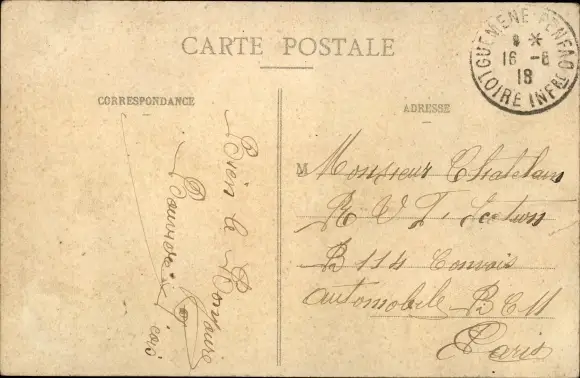 CARTE POSTALE
GUEMENE-PENFAO
8 *
16 -8
18
LOIRE INFRE
CORRESPONDANCE
ADRESSE
Bien le Bonjour
M
Monsieur Chatelain
R V F. Section
B 114 Convois
automobile B C M
Paris